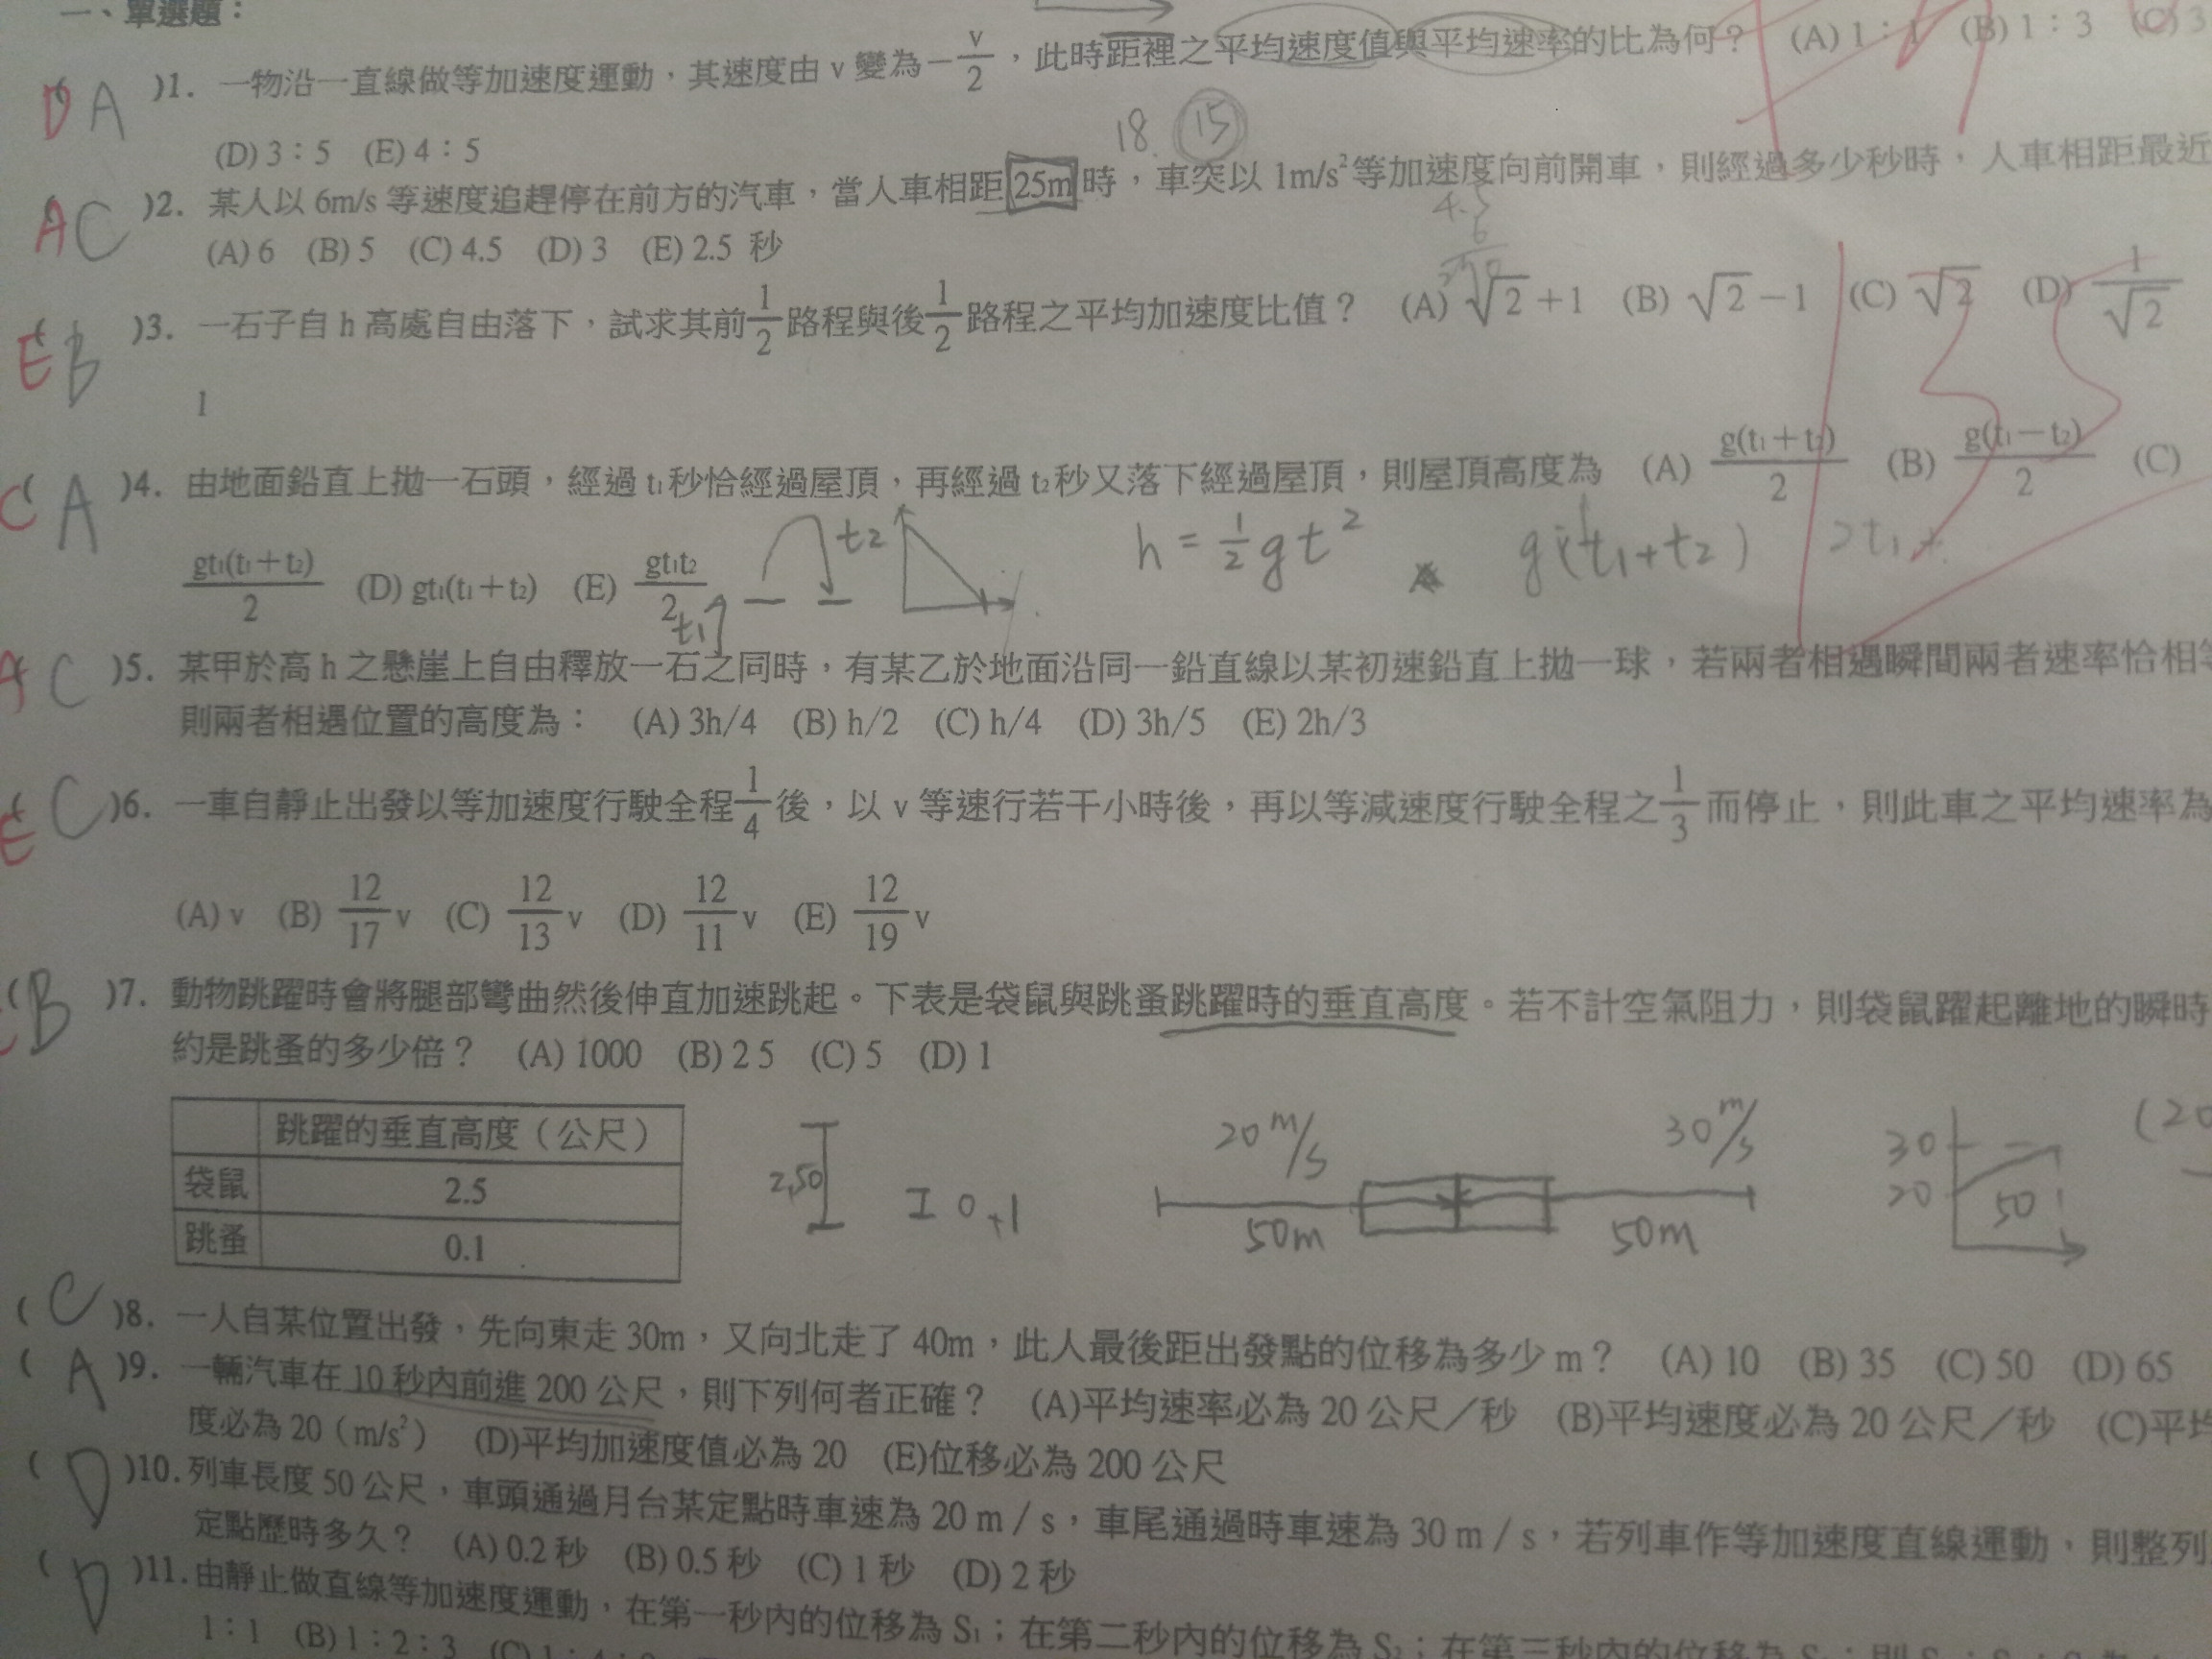 一、單選題：
D A )1. 一物沿一直線做等加速度運動，其速度由 v 變為 −v/2，此時距裡之平均速度值與平均速率的比為何？ (A) 1：1 (B) 1：3 (C) 3
(D) 3：5 (E) 4：5
18 15
A C )2. 某人以 6m/s 等速度追趕停在前方的汽車，當人車相距 25m 時，車突以 1m/s²等加速度向前開車，則經過多少秒時，人車相距最近
(A) 6 (B) 5 (C) 4.5 (D) 3 (E) 2.5 秒
4.5
6
E B )3. 一石子自 h 高處自由落下，試求其前 1/2 路程與後 1/2 路程之平均加速度比值？ (A) √2+1 (B) √2−1 (C) √2 (D) 1/√2
1
C ( A )4. 由地面鉛直上拋一石頭，經過 t₁秒恰經過屋頂，再經過 t₂秒又落下經過屋頂，則屋頂高度為 (A) g(t₁+t₂)/2 (B) g(t₁−t₂)/2 (C)
gt₁(t₁+t₂)/2 (D) gt₁(t₁+t₂) (E) gt₁t₂/2
t1 t2 h = ½gt² g(t1+t2) 2t1
A C )5. 某甲於高 h 之懸崖上自由釋放一石之同時，有某乙於地面沿同一鉛直線以某初速鉛直上拋一球，若兩者相遇瞬間兩者速率恰相等
則兩者相遇位置的高度為： (A) 3h/4 (B) h/2 (C) h/4 (D) 3h/5 (E) 2h/3
E C )6. 一車自靜止出發以等加速度行駛全程 1/4 後，以 v 等速行若干小時後，再以等減速度行駛全程之 1/3 而停止，則此車之平均速率為
(A) v (B) 12/17 v (C) 12/13 v (D) 12/11 v (E) 12/19 v
( B )7. 動物跳躍時會將腿部彎曲然後伸直加速跳起。下表是袋鼠與跳蚤跳躍時的垂直高度。若不計空氣阻力，則袋鼠躍起離地的瞬時
約是跳蚤的多少倍？ (A) 1000 (B) 2 5 (C) 5 (D) 1
跳躍的垂直高度（公尺）
袋鼠 2.5
跳蚤 0.1
2.50 0.1
20 m/s 30 m/s
50m 50m
30
20 50
(20
( C )8. 一人自某位置出發，先向東走 30m，又向北走了 40m，此人最後距出發點的位移為多少 m？ (A) 10 (B) 35 (C) 50 (D) 65
( A )9. 一輛汽車在 10 秒內前進 200 公尺，則下列何者正確？ (A)平均速率必為 20 公尺／秒 (B)平均速度必為 20 公尺／秒 (C)平均
度必為 20（m/s²） (D)平均加速度值必為 20 (E)位移必為 200 公尺
( D )10. 列車長度 50 公尺，車頭通過月台某定點時車速為 20 m／s，車尾通過時車速為 30 m／s，若列車作等加速度直線運動，則整列
定點歷時多久？ (A) 0.2 秒 (B) 0.5 秒 (C) 1 秒 (D) 2 秒
( D )11. 由靜止做直線等加速度運動，在第一秒內的位移為 S₁；在第二秒內的位移為 S₂；在第三秒內的位移為
1：1 (B) 1：2：3